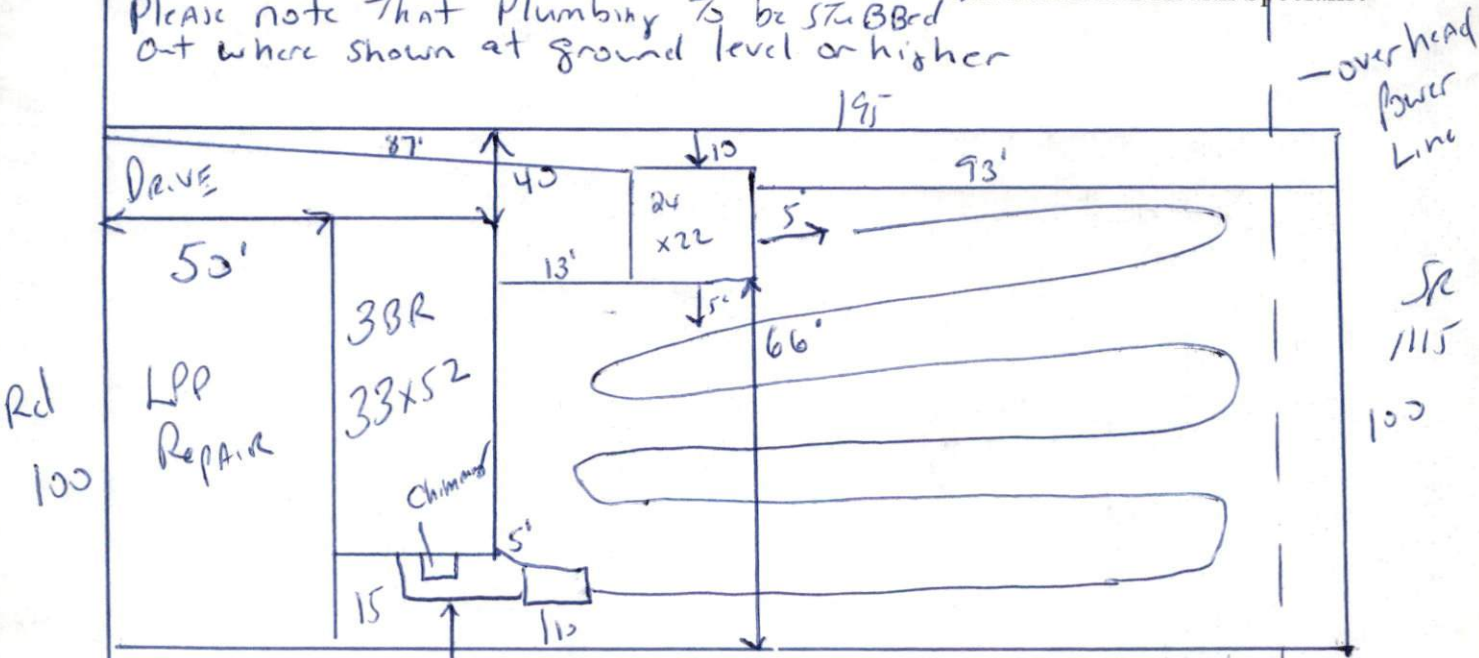 Please note That Plumbing To be STuBBed
out where shown at ground level or higher
- overhead
Power
Line
195
87'
10
DRIVE
40
93'
24
x22
5'
50'
13'
5'
3BR
33x52
66'
SR
1115
Rd
100
LPP
RepAiR
100
5'
15
10